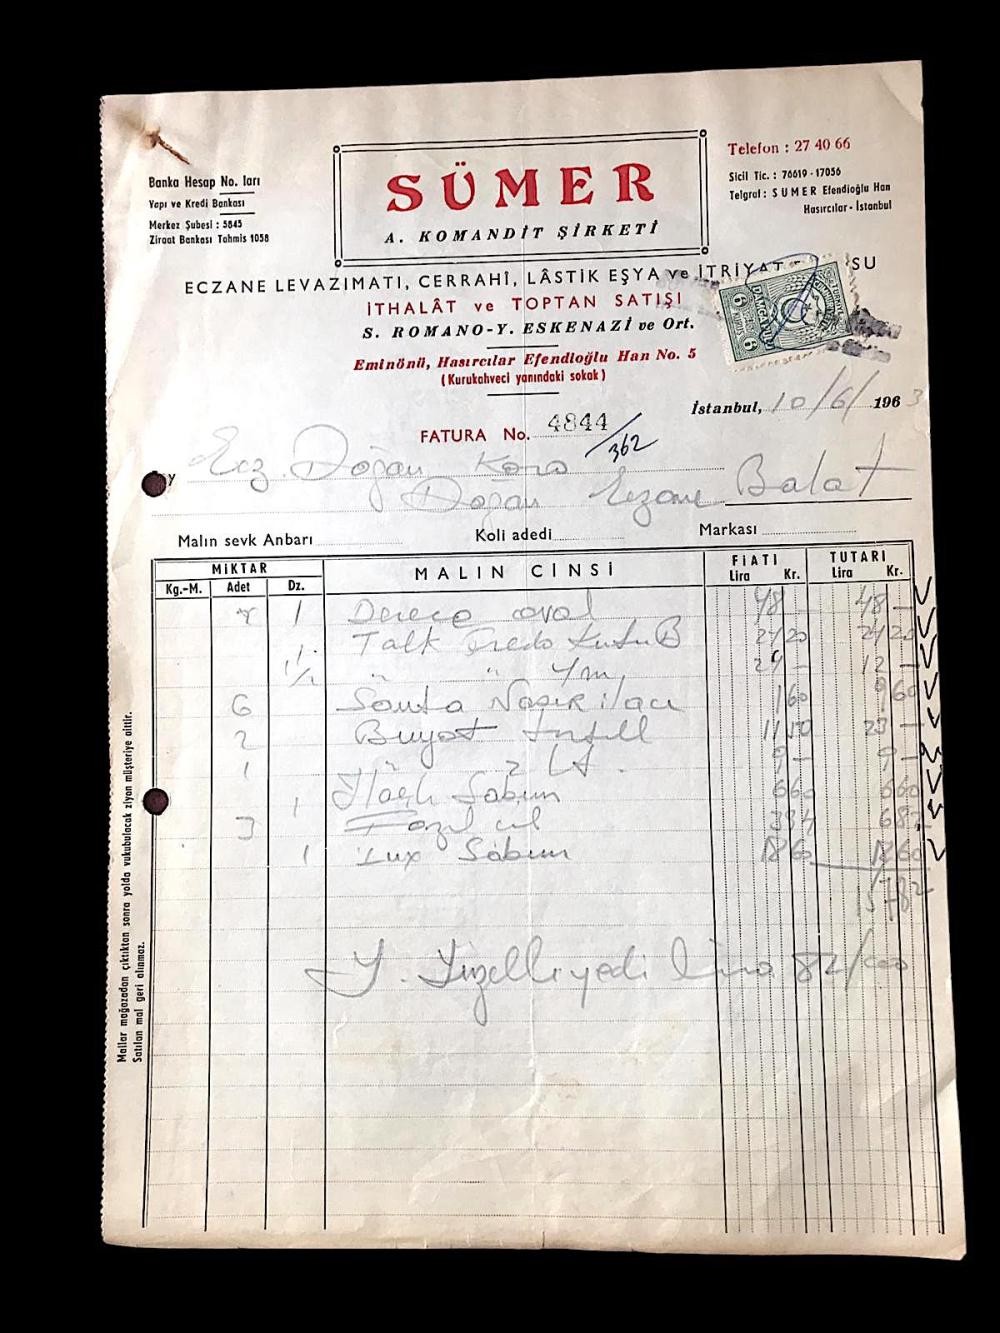 Telefon : 27 40 66
Banka Hesap No. ları
Yapı ve Kredi Bankası
Merkez Şubesi : 5845
Ziraat Bankası Tahmis 1058
SÜMER
A. KOMANDİT ŞİRKETİ
Sicil Tic. : 76619 - 17056
Telgraf : SUMER Efendioğlu Han
Hasırcılar - İstanbul
ECZANE LEVAZIMATI, CERRAHÎ, LÂSTİK EŞYA ve İTRİYAT SU
İTHALÂT ve TOPTAN SATIŞI
S. ROMANO - Y. ESKENAZİ ve Ort.
Eminönü, Hasırcılar Efendioğlu Han No. 5
(Kurukahveci yanındaki sokak)
DAMGA PULU
6 6
İstanbul, 10/6/1963
FATURA No. 4844/362
Ecz Doğan Kora
Doğan Eczane Balat
Malın sevk Anbarı Koli adedi Markası
MİKTAR MALIN CİNSİ FİATI TUTARI
Kg.-M. Adet Dz. Lira Kr. Lira Kr.
1 Derece oval 48 - 48 -
1 Talk Kutu B 24 20 24 20
1/2 " " 24 - 12 -
6 Nasır ilacı 160 9 60
2 Buyot 11 50 23 -
1 " 2 Lt. 9 - 9 -
1 Sabun 660 660
3 682
1 Lux Sabun 18 60 18 60
157 82
Y. Yüzelliyedi lira 82/000
Mallar mağazadan çıktıktan sonra yolda vukubulacak ziyan müşteriye aittir.
Satılan mal geri alınmaz.